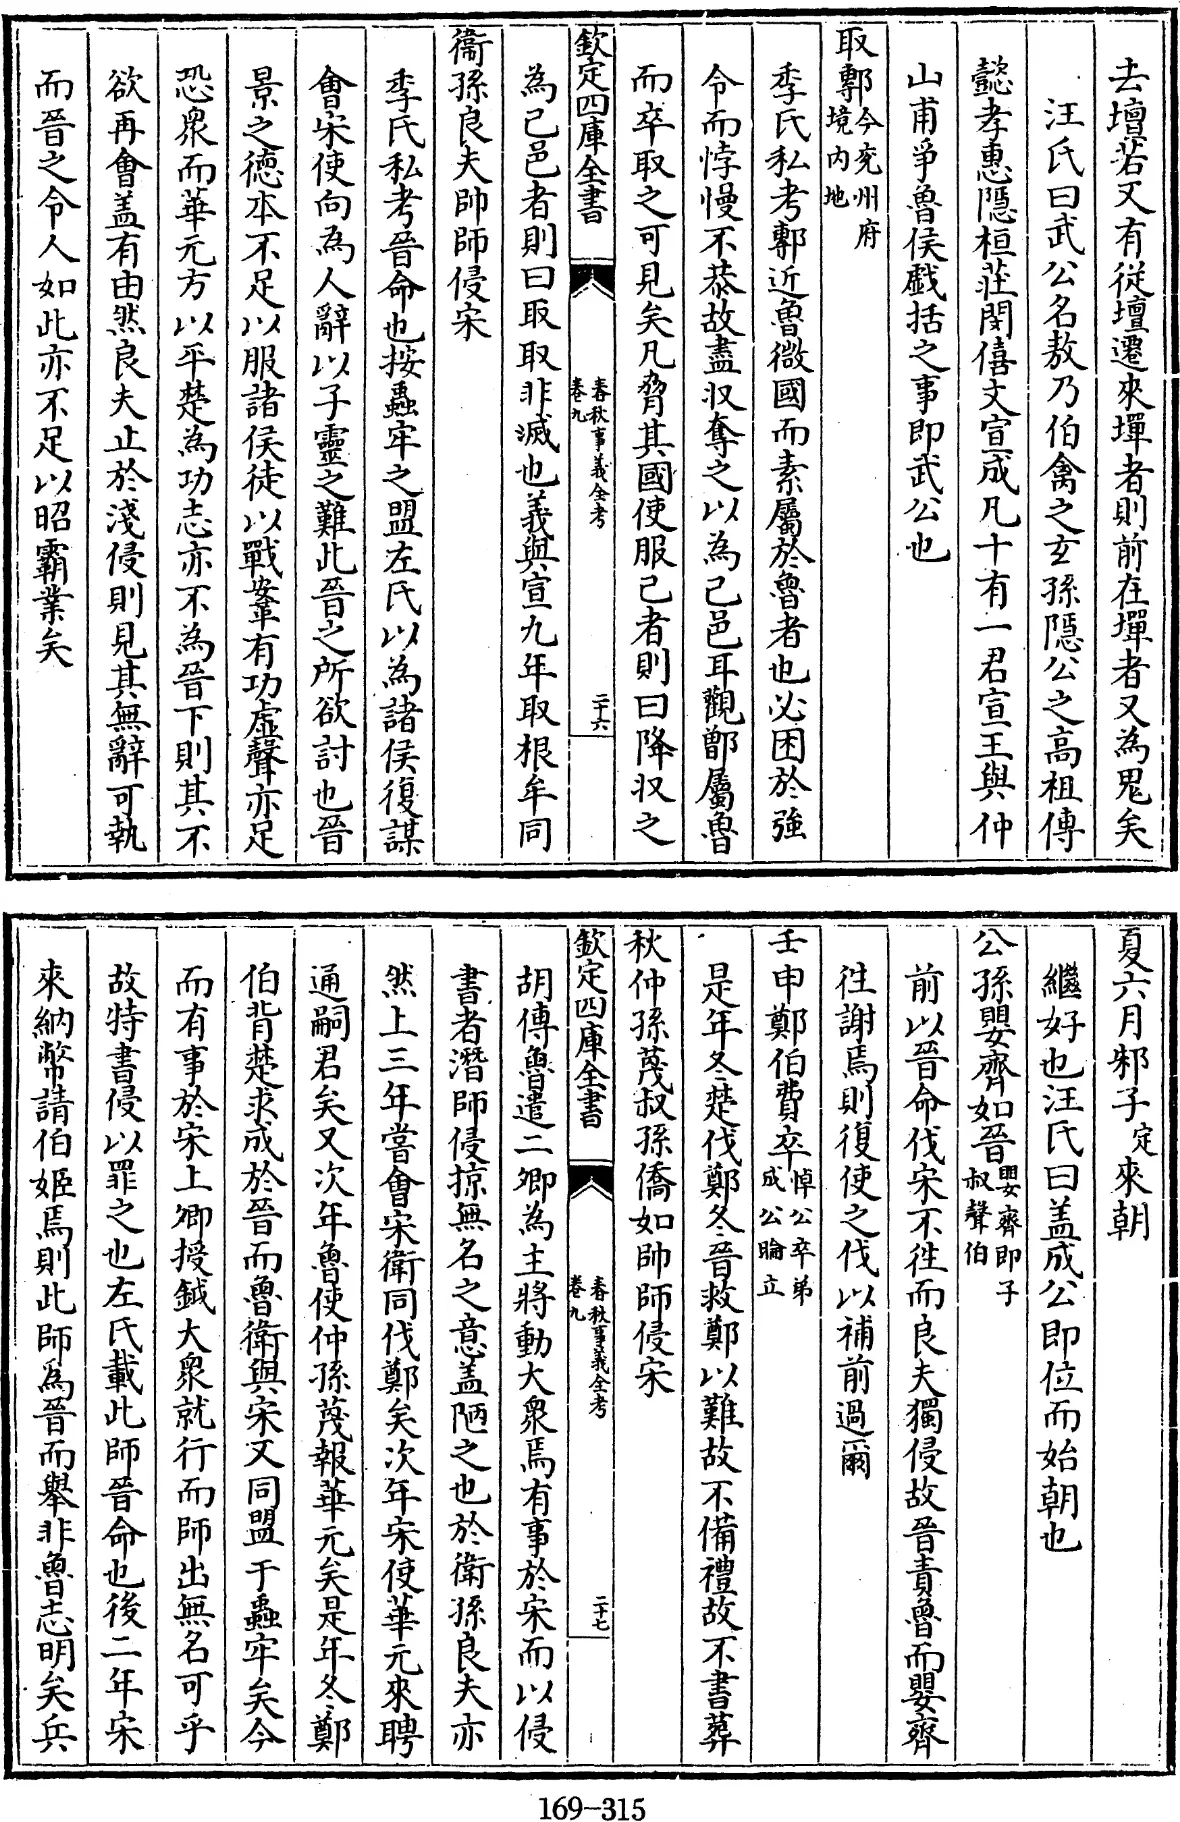 去壇若又有從壇遷來墠者則前在墠者又為鬼矣
汪氏曰武公名敖乃伯禽之玄孫隱公之高祖傳
懿孝惠隱桓莊閔僖文宣成凡十有一君宣王與仲
山甫爭魯侯戲括之事即武公也
取鄟今兖州府境内地
季氏私考鄟近魯微國而素屬於魯者也必困於強
令而悖慢不恭故盡収奪之以為己邑耳觀鄫屬魯
而卒取之可見矣凡脅其國使服己者則曰降収之
欽定四庫全書 春秋事義全考 卷九 二十六
為己邑者則曰取取非滅也義與宣九年取根牟同
衞孫良夫帥師侵宋
季氏私考晉命也按蟲牢之盟左氏以為諸侯復謀
會宋使向為人辭以子靈之難此晉之所欲討也晉
景之德本不足以服諸侯徒以戰鞌有功虛聲亦足
恐衆而華元方以平楚為功志亦不為晉下則其不
欲再會盖有由然良夫止於淺侵則見其無辭可執
而晉之令人如此亦不足以昭霸業矣
夏六月邾子定來朝
繼好也汪氏曰盖成公即位而始朝也
公孫嬰齊如晉嬰齊即子叔聲伯
前以晉命伐宋不徃而良夫獨侵故晉責魯而嬰齊
徃謝焉則復使之伐以補前過爾
壬申鄭伯費卒悼公卒弟成公睔立
是年冬楚伐鄭冬晉救鄭以難故不備禮故不書葬
秋仲孫蔑叔孫僑如帥師侵宋
欽定四庫全書 春秋事義全考 卷九 二十七
胡傳魯遣二卿為主將動大衆焉有事於宋而以侵
書者潛師侵掠無名之意盖陋之也於衛孫良夫亦
然上三年嘗會宋衛同伐鄭矣次年宋使華元來聘
通嗣君矣又次年魯使仲孫蔑報華元矣是年冬鄭
伯背楚求成於晉而魯衛與宋又同盟于蟲牢矣今
而有事於宋上卿授鉞大衆就行而師出無名可乎
故特書侵以罪之也左氏載此師晉命也後二年宋
來納幣請伯姬焉則此師為晉而舉非魯志明矣兵
169-315